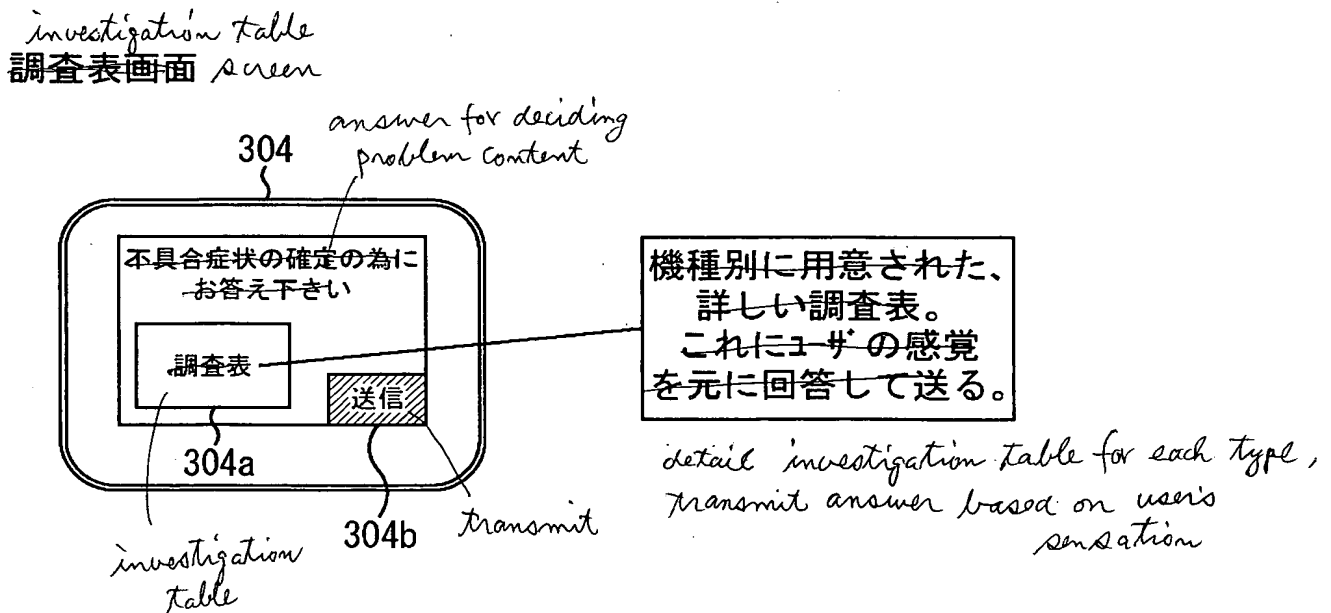 investigation table
調査表画面 screen
answer for deciding
problem content
304
不具合症状の確定の為に
お答え下さい
調査表
送信
304a
304b
transmit
investigation
table
機種別に用意された、
詳しい調査表。
これにユーザの感覚
を元に回答して送る。
detail investigation table for each type,
transmit answer based on user's
sensation